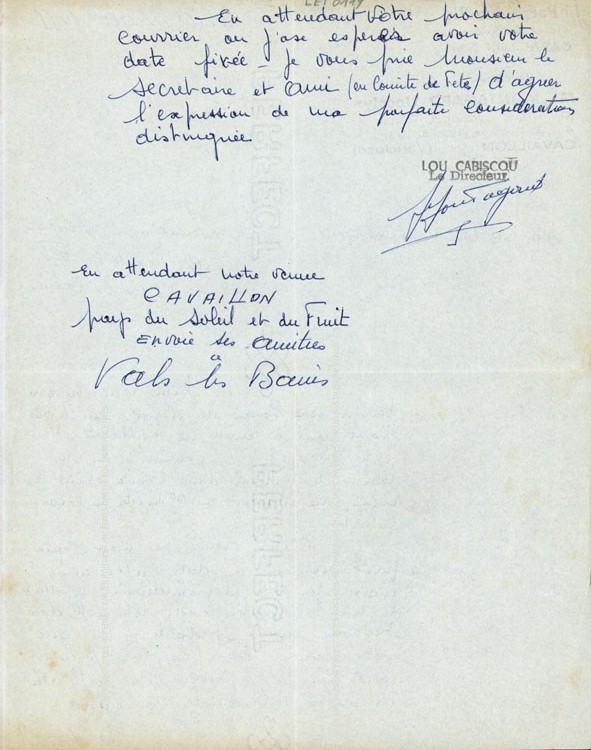 LET0119
En attendant Votre prochain
courrier ou j'ose esperer avoir votre
date fixée - je vous prie Monsieur le
secretaire et ami (en Comite de Fete) d'agreer
l'expression de ma parfaite consideration
distinguée
LOU CABISCOU
Le Directeur.
En attendant notre venue
CAVAILLON
pays du Soleil et du Fruit
ENVOIE ses amities
a
Vals les Bains
PERFECT